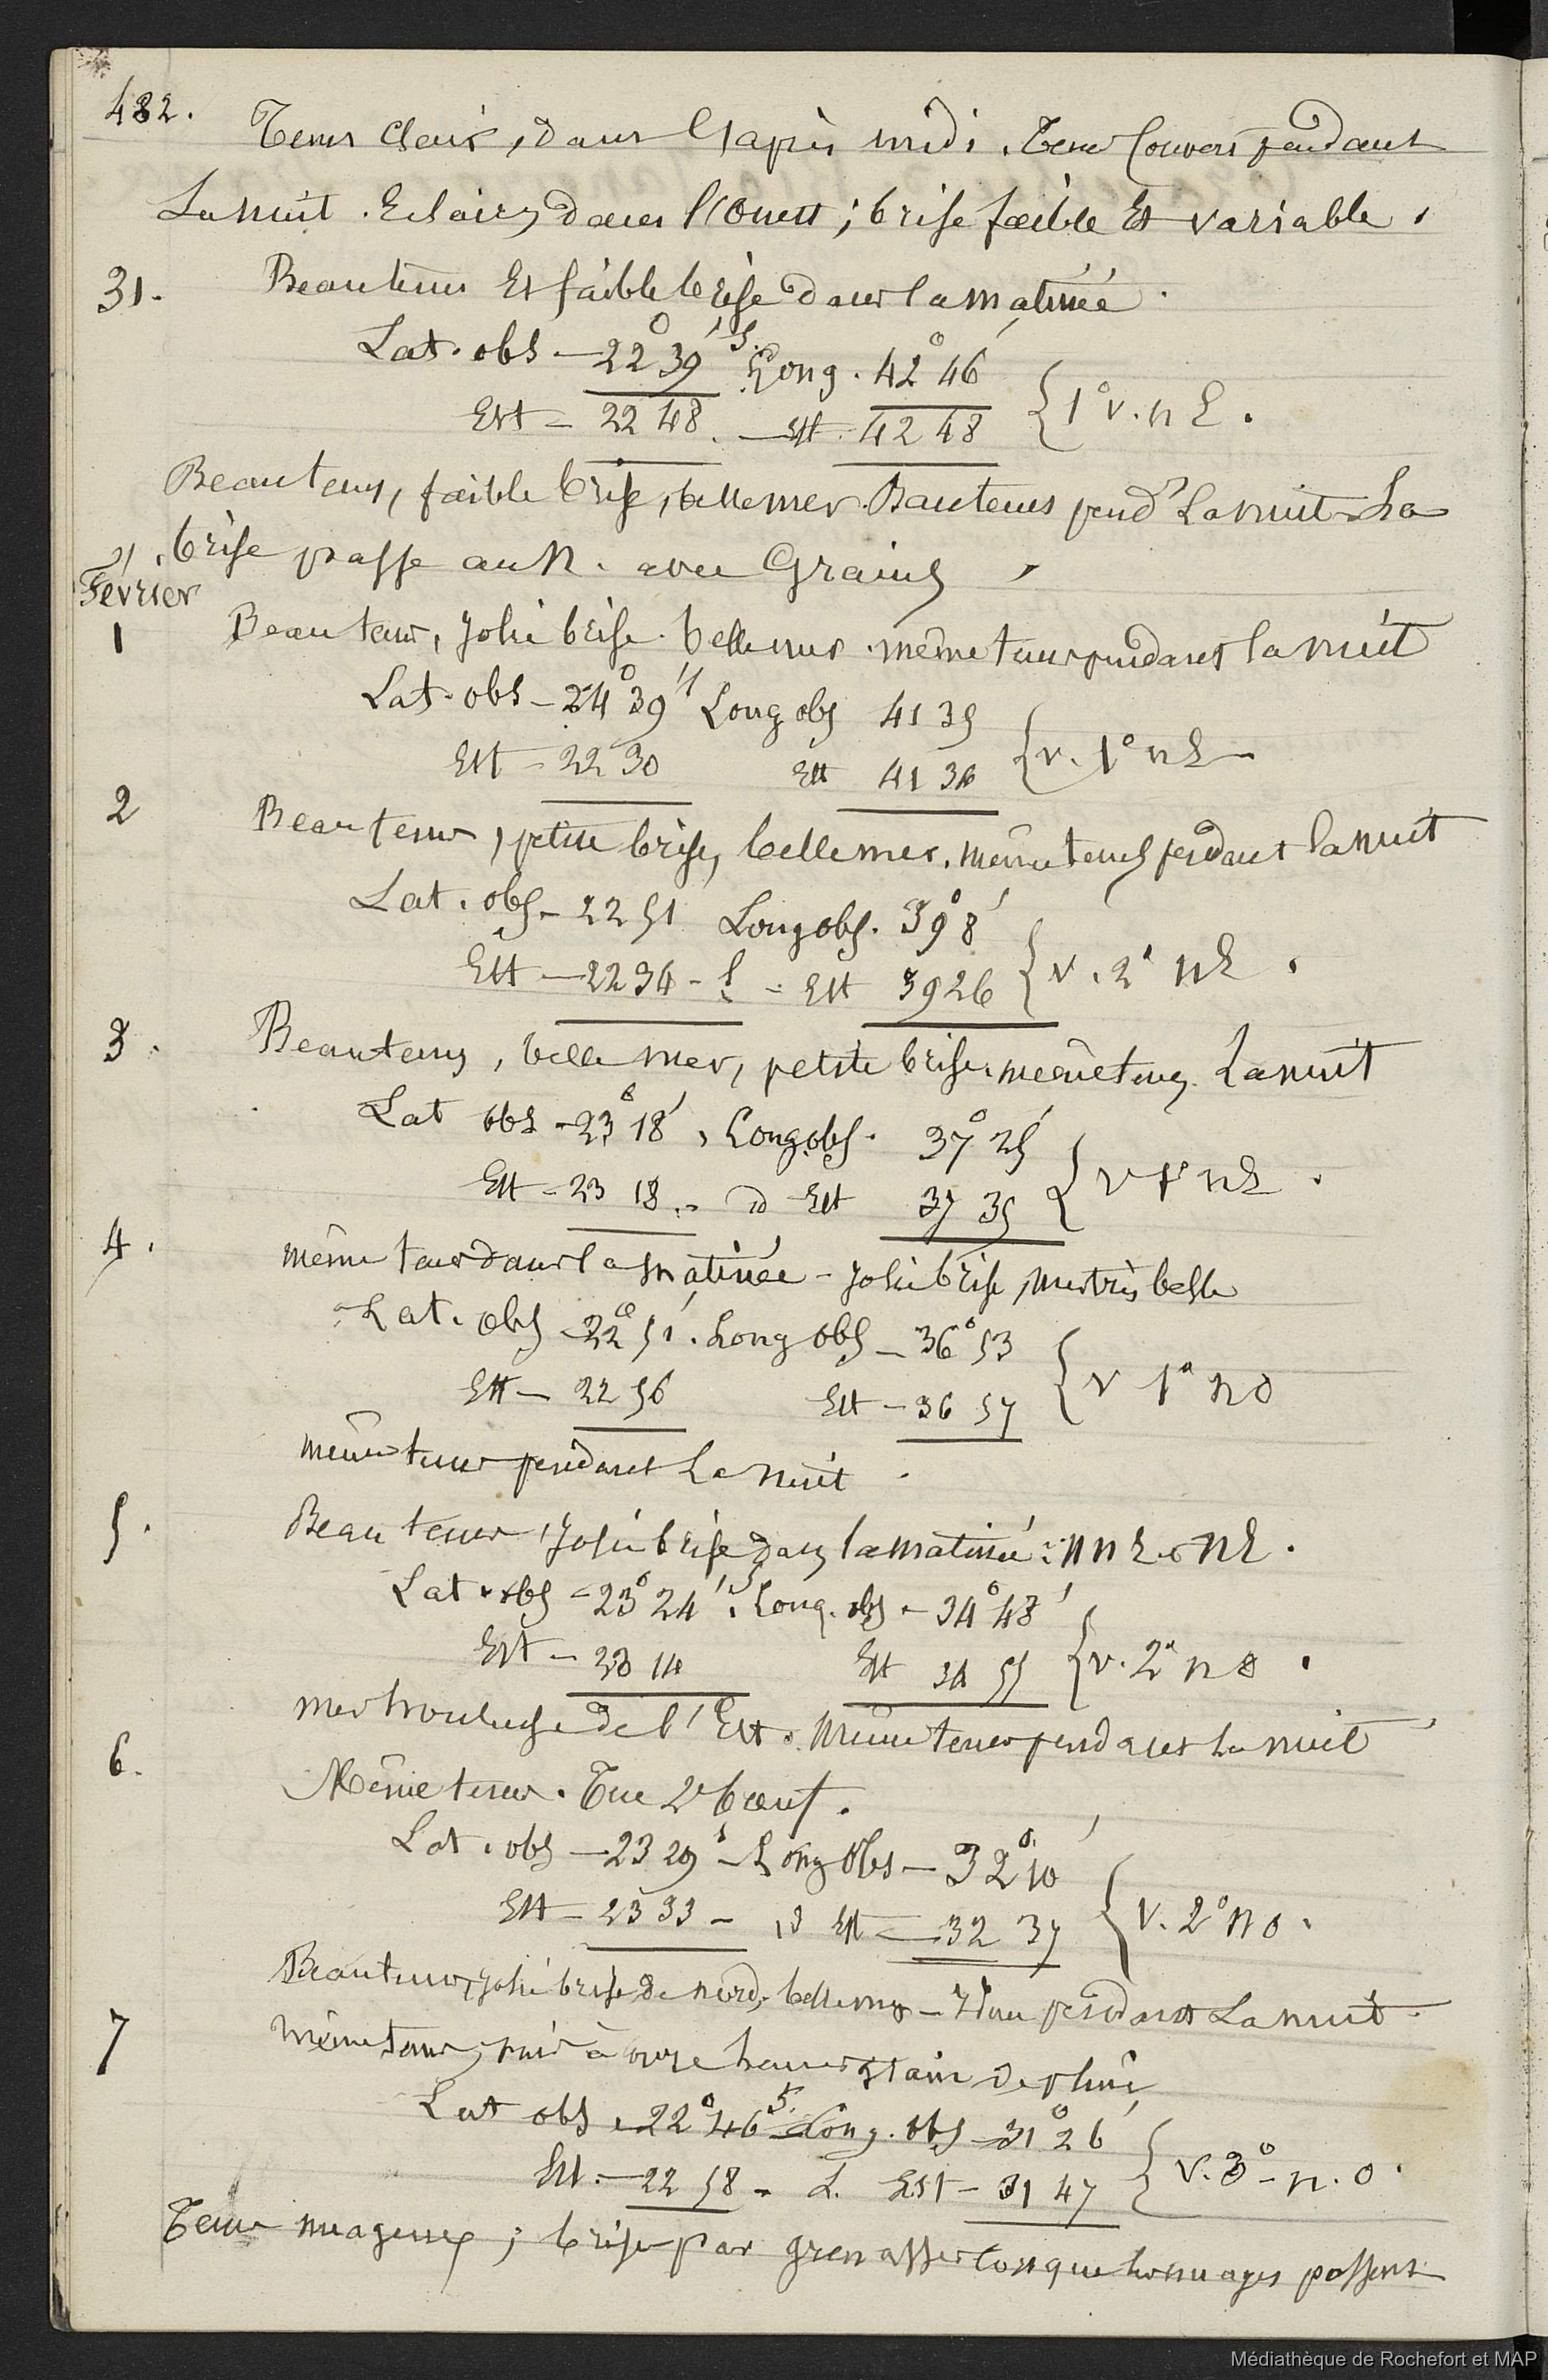 482.
Tems clair, dans l'après midi. Tems couvert pendant
La nuit. Eclairs dans l'Ouest ; brise faible et variable.
31. Beau tems et faible brise dans la matinée.
Lat. obs — 22° 39' S. Long. 42° 46'
Est — 22 48. — Est. 42 48 { 1° v. n E.
Beau tems, faible brise, belle mer. Beau tems pend.t La nuit. La
brise passe au N. avec Grains
Février
1 Beau tems, Jolie brise. belle mer. même tems pendant la nuit
Lat. obs — 24° 39' Long obs 41 35
Est — 22 30 Est 41 36 { v. 1° n E —
2 Beau tems, petite brise, belle mer. même tems pendant la nuit
Lat. obs — 22 51 Long obs. 39° 8'
Est — 22 34 - Est 39 26 { v. 2° n E.
3. Beau tems, belle mer, petite brise. même tems. La nuit
Lat obs — 23° 18', Long. obs. 37° 25'
Est — 23 18. - id Est 37 35 { v 1° n E.
4. même tems dans la matinée — Jolie brise, mer très belle
Lat. obs — 22° 51'. Long obs — 36° 53
Est — 22 56 Est — 36 57 { v 1° n o
même tems pendant La nuit.
5. Beau tems, Jolie brise dans la matinée : N N E. o NE.
Lat. obs — 23° 24' S. Long. obs — 34° 48'
Est — 23 14 Est 34 55 { v. 2° n o.
mer houleuse de l'Est. même tems pendant La nuit
6. Même tems. Tué 2e bœuf.
Lat. obs — 23 29' — Long Obs — 32° 10'
Est — 23 33 — id Est — 32 37 { v. 2° n o.
Beau tems, Jolie brise de nord, belle mer — Idem pendant La nuit.
7 Même tems, puis à onze heures grain de pluie,
Lat obs. 22° 46' S. Long. obs — 31° 26'
Est. — 22 58 — d. Est — 31 47 { v. 3° — n. o.
Tems nuageux ; brise par grenasses lorsque les nuages passent
Médiathèque de Rochefort et MAP